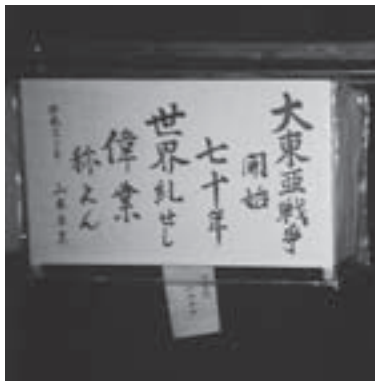 大東亜戦争
開始
七十年
世界糺せし
偉業
称えん